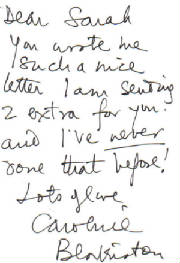 Dear Sarah
You wrote me
such a nice
letter I am sending
2 extra for you.
and I've never
done that before!
Lots of love,
Caroline
Blakiston